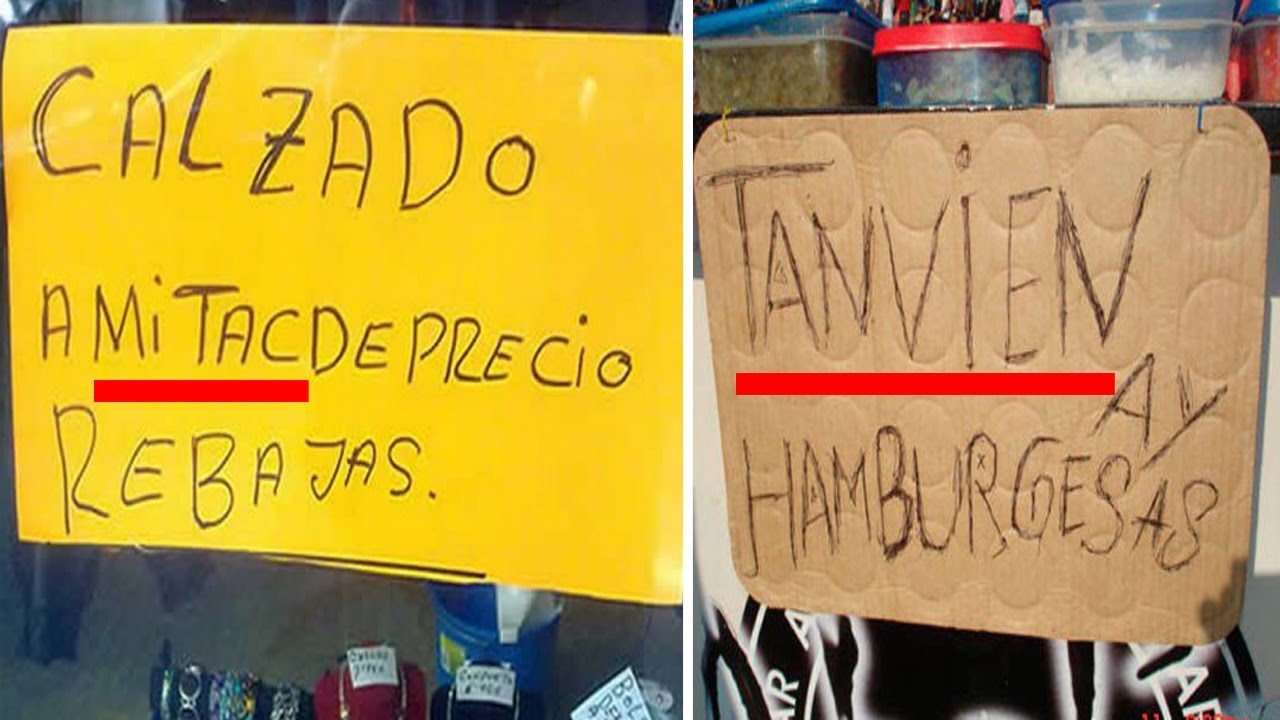 CALZADO
A MiTAC DE PRECiO
REBAJAS.
TANViEN
AY
HAMBURGESAS